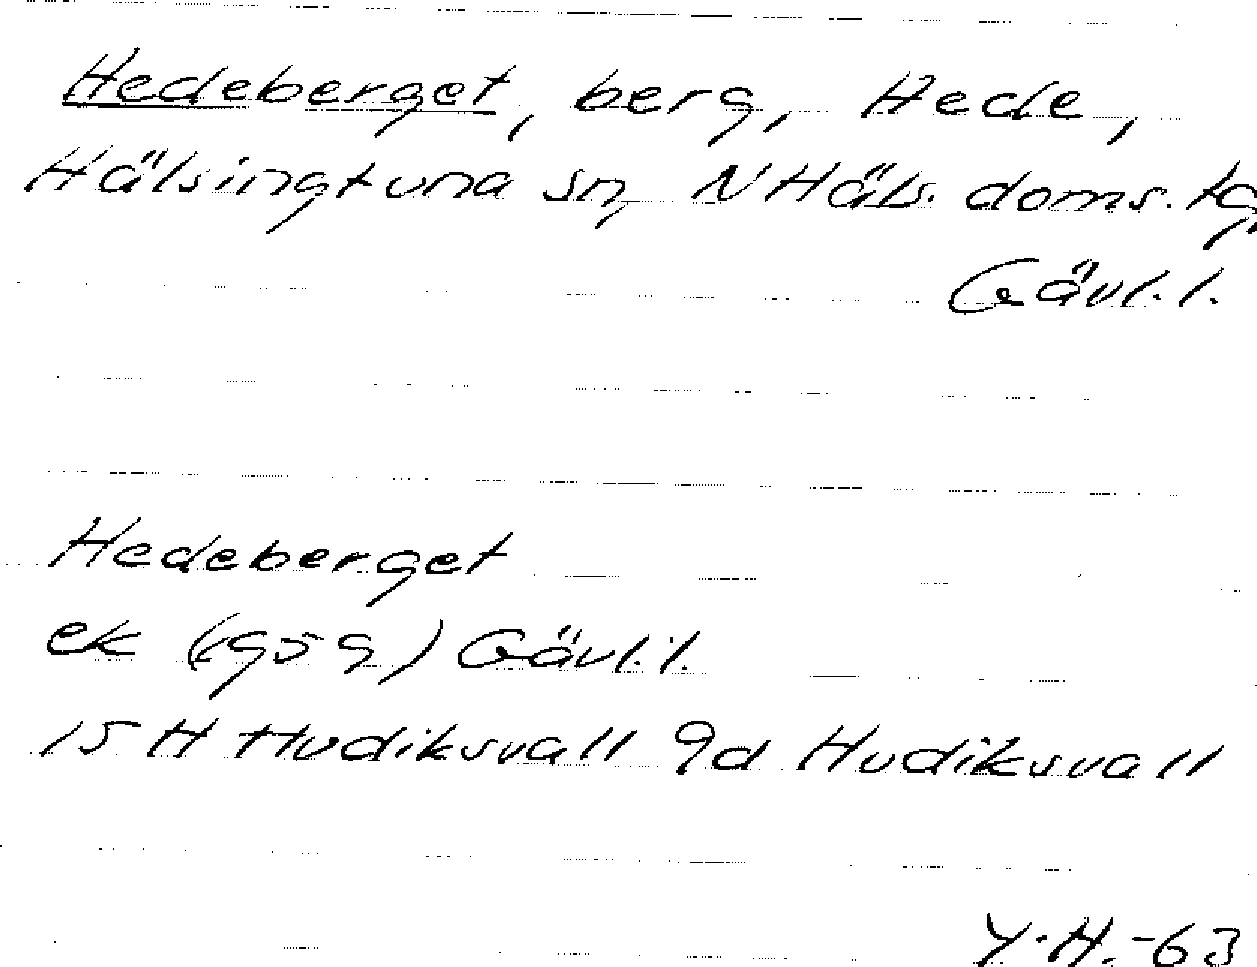 Hedeberget, berg, Hede,
Hälsingtuna sn, NHäls. doms. tg,
Gävl.l.
Hedeberget
ek (1959) Gävl.l.
15 H Hudiksvall 9d Hudiksvall
Y.H.-63